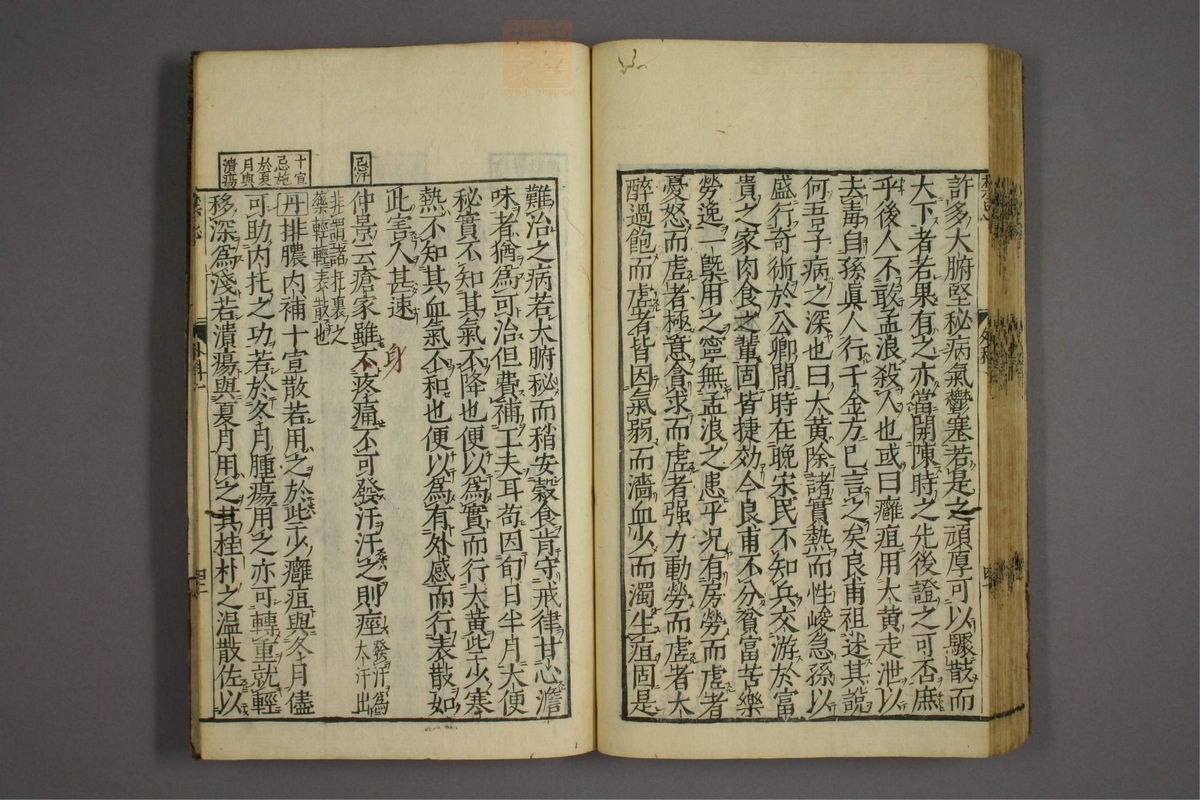 許多大腑堅秘病氣鬱塞若是之頑厚可以驟散而
大下者若果有之亦當開陳時之先後證之可否庶
乎後人不敢孟浪殺人也或曰癰疽用大黃走泄以
去毒自孫眞人行千金方已言之矣良甫祖述其說
何吾子病之深也曰大黃除諸實熱而性峻急孫以
盛行奇術於公卿間時在晚宋民不知兵交游於富
貴之家肉食之輩固皆捷効今良甫不分貧富苦樂
勞逸一槩用之寧無孟浪之患乎况有房勞而虛者
憂怒而虛者極意貪求而虛者强力動勞而虛者大
醉過飽而虛者皆因氣弱而濇血少而濁生疽固是
難治之病若大腑秘而稍安穀食肯守戒律甘心澹
味者猶爲可治但費補工夫耳苟因旬日半月大便
秘實不知其氣不降也便以爲實而行大黃些少寒
熱不知其血氣不和也便以爲有外感而行表散如
此害人甚速
忌汗
仲景云瘡家雖不疼痛不可發汗汗之則痓發汗爲
太汗出
非謂諸托裏之
藥輕輕表散也
身
十宣
忌施
於夏
月與
潰瘍
丹排膿内補十宣散若用之於些少癰疽與冬月儘
可助内托之功若於冬月腫瘍用之亦可轉重就輕
移深爲淺若潰瘍與夏月用之其桂朴之温散佐以
外科一